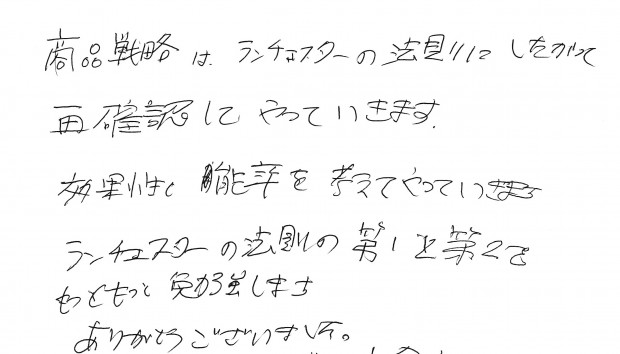 商品戦略は、ランチェスターの法則にしたがって
再確認してやっていきます。
効果性と能率を考えてやっていきます
ランチェスターの法則の第1と第2を
もっともっと勉強します
ありがとうございました。